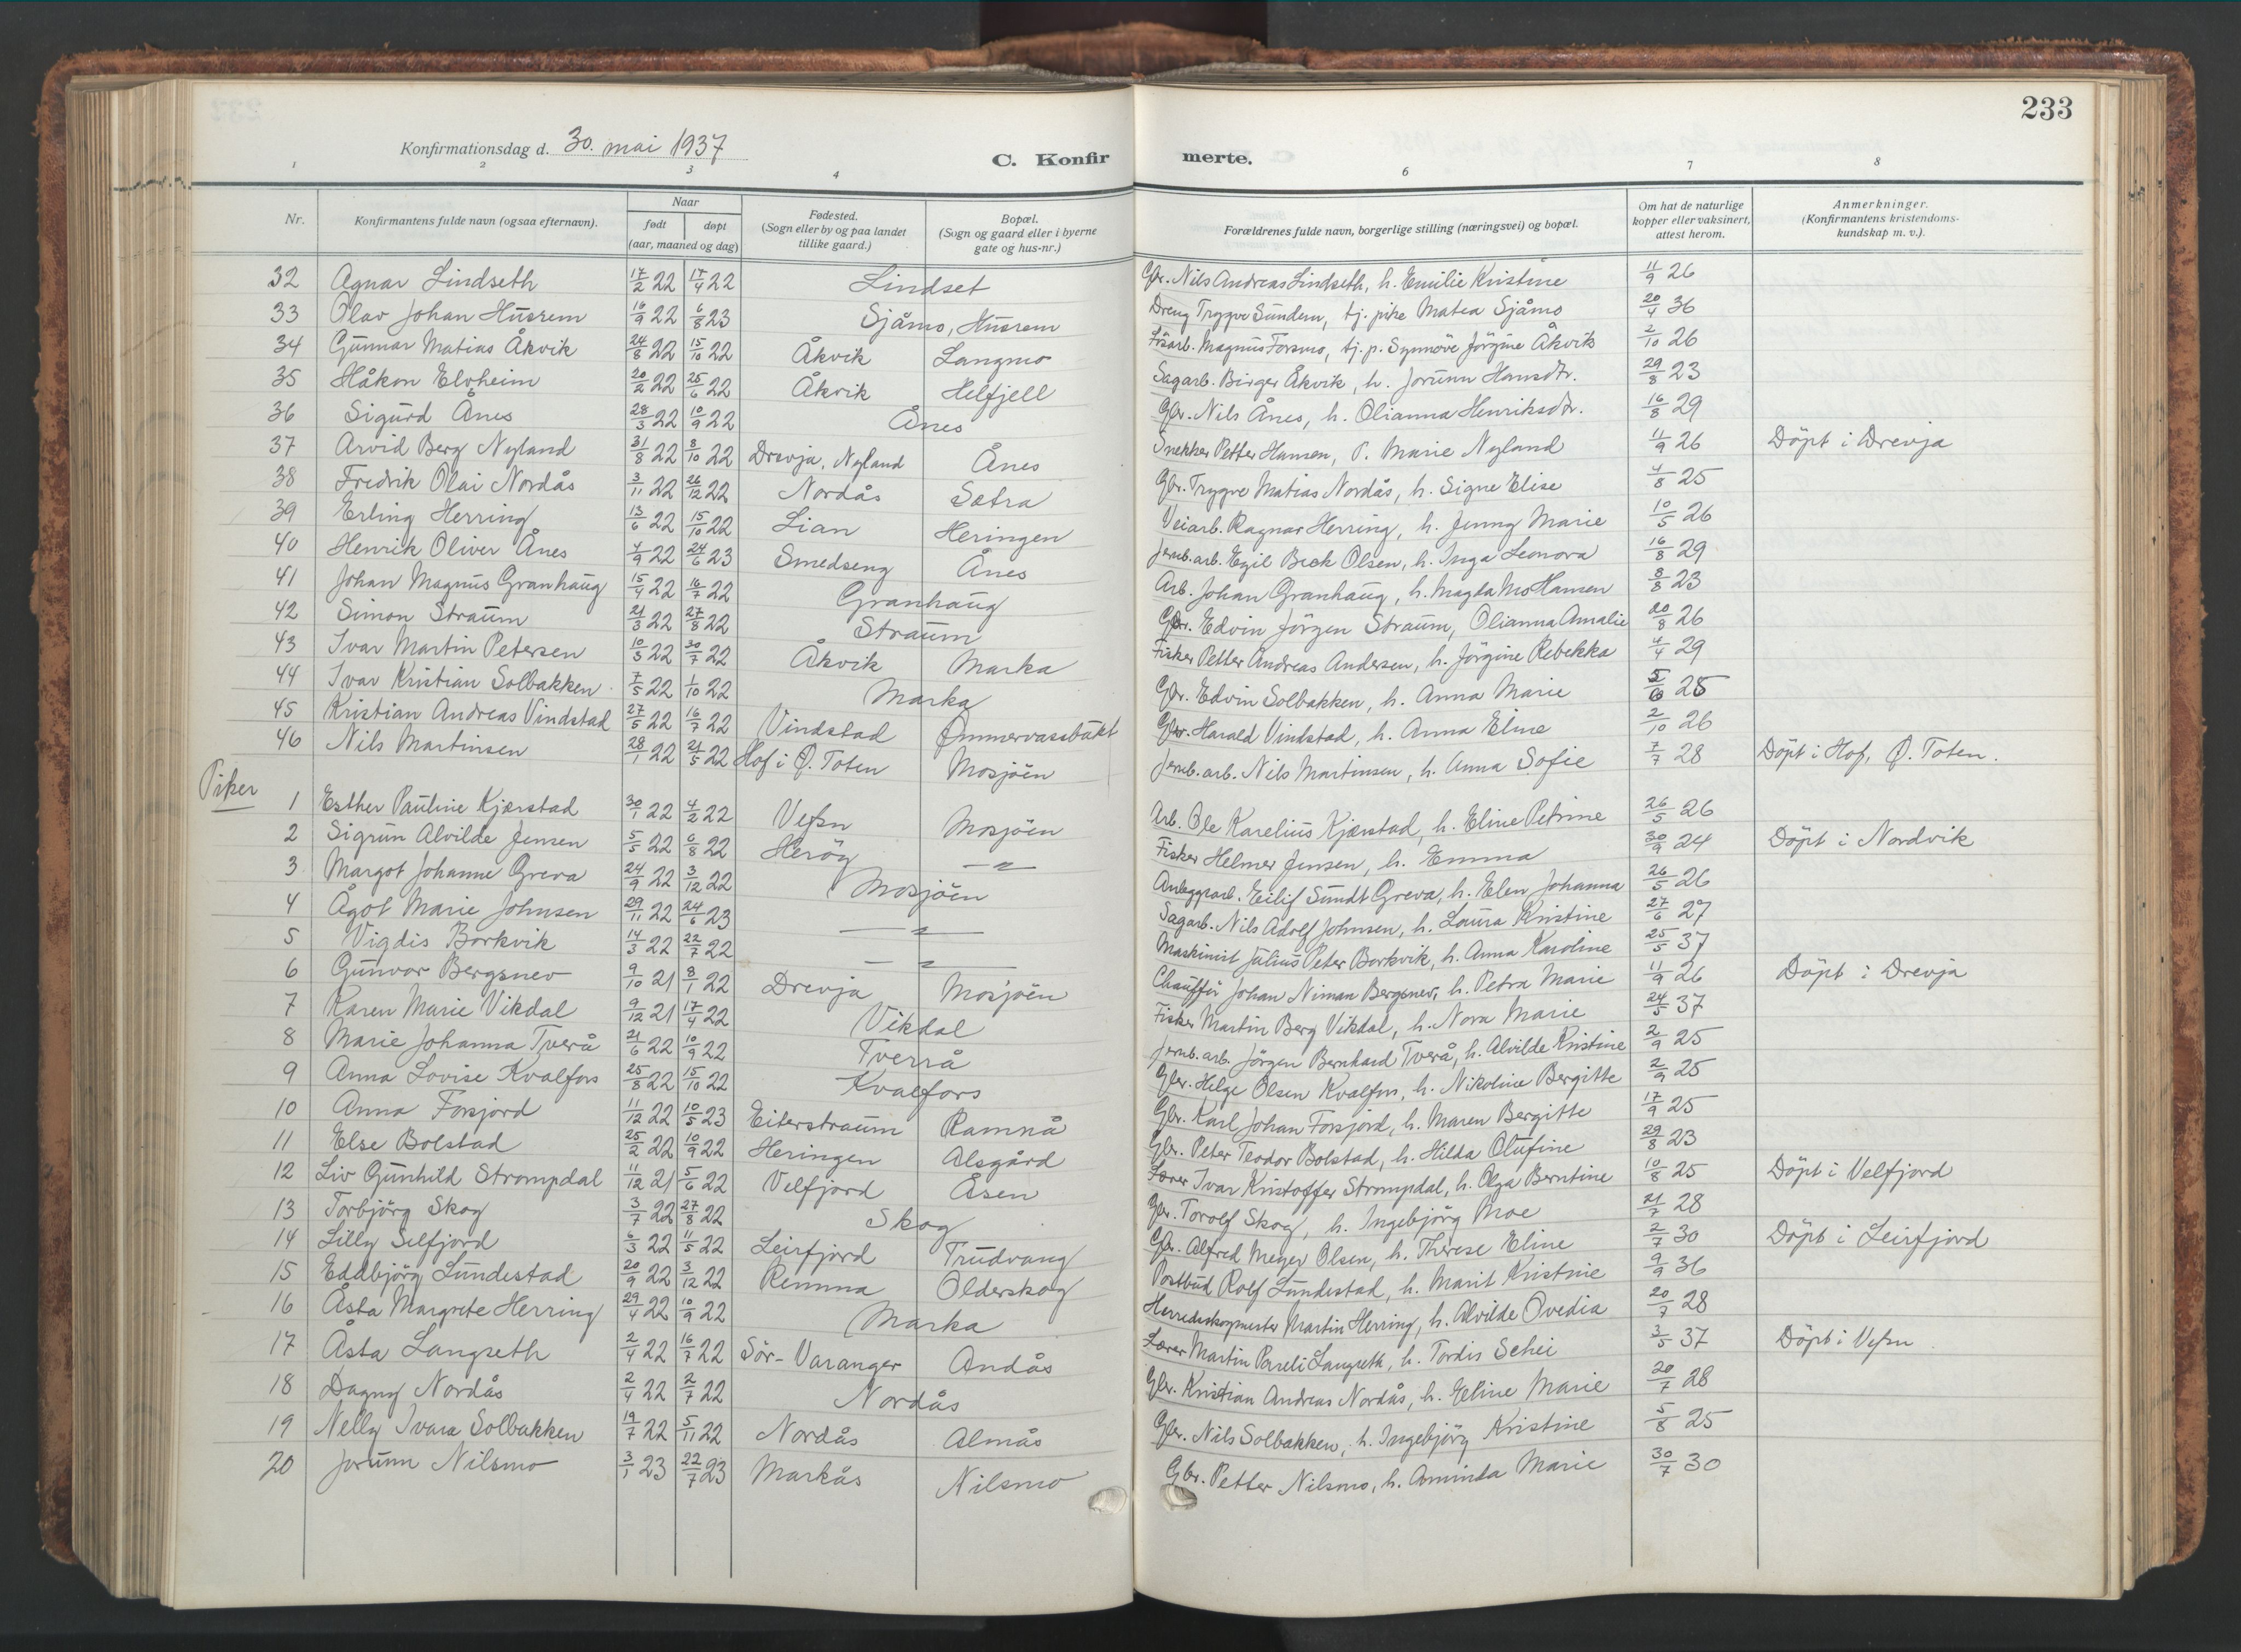 233
Konfirmationsdag d. 30. mai 1937
C. Konfirmerte.
1 2 3 4 6 7 8
Nr. | Konfirmantens fulde navn (ogsaa efternavn). | Naar født døpt (aar, maaned og dag) | Fødested. (Sogn eller by og paa landet tillike gaard.) | Bopæl. (Sogn og gaard eller i byerne gate og hus-nr.) | Forældrenes fulde navn, borgerlige stilling (næringsvei) og bopæl. | Om hat de naturlige kopper eller vaksinert, attest herom. | Anmerkninger. (Konfirmantens kristendoms-kundskap m. v.).
32 Agnar Lindseth 17/2 22 17/4 22 Lindset Gbr. Nils Andreas Lindseth, h. Emilie Kristine 11/9 26
33 Olav Johan Husrem 16/9 22 6/8 23 Sjåmo, Husrem Dreng Trygve Sundem, tj. pike Matea Sjåmo 20/4 36
34 Gunnar Matias Åkvik 24/8 22 15/10 22 Åkvik Langmo Lösarb. Magnus Forsmo, tj. p. Synnöve Jörgine Åkvik 2/10 26
35 Håkon Elvheim 20/2 22 25/6 22 Åkvik Helfjell Sagarb. Birger Åkvik, h. Jorunn Hansdtr. 29/8 23
36 Sigurd Ånes 28/3 22 10/9 22 Ånes Gbr. Nils Ånes, h. Olianna Henriksdtr. 16/8 29
37 Arvid Berg Nyland 31/8 22 8/10 22 Drevja, Nyland Ånes Snekker Petter Hansen, P. Marie Nyland 11/9 26 Döpt i Drevja
38 Fredrik Olai Nordås 3/11 22 26/12 22 Nordås Sætra Gbr. Trygve Matias Nordås, h. Signe Elise 4/8 25
39 Erling Herring 13/6 22 15/10 22 Lian Heringen Veiarb. Ragnar Herring, h. Jenny Marie 10/5 26
40 Henrik Oliver Ånes 4/9 22 24/6 23 Smedseng Ånes Jernb.arb. Egil Beck Olsen, h. Inga Leonora 16/8 29
41 Johan Magnus Granhaug 15/4 22 16/7 22 Granhaug Arb. Johan Granhaug, h. Magda Mo Hansen 8/8 23
42 Simon Straum 21/3 22 27/8 22 Straum Gbr. Edvin Jörgen Straum, Olianna Amalie 20/8 26
43 Ivar Martin Petersen 10/3 22 30/7 22 Åkvik Marka Fisker Petter Andreas Andersen, h. Jörgine Rebekka 4/4 29
44 Ivar Kristian Solbakken 7/5 22 1/10 22 Marka Gbr. Edvin Solbakken, h. Anna Marie 5/6 25
45 Kristian Andreas Vindstad 27/5 22 16/7 22 Vindstad Ömmervassbukt Gbr. Harald Vindstad, h. Anna Eline 2/10 26
46 Nils Martinsen 28/1 22 21/5 22 Hof i Ö. Toten Mosjöen Jernb.arb. Nils Martinsen, h. Anna Sofie 7/7 28 Döpt i Hof, Ö. Toten.
Piker
1 Esther Pauline Kjærstad 30/1 22 4/2 22 Vefsn Mosjöen Arb. Ole Karelius Kjærstad, h. Eline Petrine 26/5 26
2 Sigrun Alvilde Jensen 5/5 22 6/8 22 Heröy —"— Fisker Helmer Jensen, h. Emma 30/9 24 Döpt i Nordvik
3 Margot Johanne Greva 24/9 22 3/12 22 Mosjöen Anleggsarb. Eilif Sundt Greva, h. Elen Johanna 26/5 26
4 Ågot Marie Johnsen 29/11 22 24/6 23 —"— Sagarb. Nils Adolf Johnsen, h. Laura Kristine 27/6 27
5 Vigdis Borkvik 14/3 22 22/7 22 —"— Maskinist Julius Peter Borkvik, h. Anna Karoline 25/5 37
6 Gunvor Bergsnev 9/10 21 8/1 22 Drevja Mosjöen Chaufför Johan Niman Bergsnev, h. Petra Marie 11/9 26 Döpt i Drevja
7 Karen Marie Vikdal 9/12 21 17/4 22 Vikdal Fisker Martin Berg Vikdal, h. Nora Marie 24/5 37
8 Marie Johanna Tverå 21/6 22 10/9 22 Tverrå Jernb.arb. Jörgen Bernhard Tverå, h. Alvilde Kristine 2/9 25
9 Anna Lovise Kvalfors 25/8 22 15/10 22 Kvalfors Gbr. Helge Olsen Kvalfors, h. Nikoline Bergitte 2/9 25
10 Anna Forsjord 11/12 22 10/5 23 Eiterstraum Ramnå Gbr. Karl Johan Forsjord, h. Maren Bergitte 17/9 25
11 Else Bolstad 25/2 22 10/9 22 Heringen Alsgård Gbr. Peter Teodor Bolstad, h. Hilda Olufine 29/8 23
12 Liv Gunhild Strompdal 11/12 21 5/6 22 Velfjord Åsen Lærer Ivar Kristoffer Strompdal, h. Olga Berntine 10/8 25 Döpt i Velfjord
13 Torbjörg Skog 3/7 22 27/8 22 Skog Gbr. Torolf Skog, h. Ingebjörg Moe 21/7 28
14 Lilly Selfjord 6/3 22 11/5 22 Leirfjord Trudvang Gbr. Alfred Meyer Olsen, h. Therese Eline 2/7 30 Döpt i Leirfjord
15 Eddbjörg Lundestad 20/9 22 3/12 22 Remma Olderskog Postbud Rolf Lundestad, h. Marit Kristine 9/9 36
16 Åsta Margrete Herring 29/4 22 10/9 22 Marka Herredsskogmester Martin Herring, h. Alvilde Ovedia 20/7 28
17 Åsta Langseth 2/4 22 16/7 22 Sör-Varanger Andås Lærer Martin Pareli Langseth, h. Tordis Schei 3/5 37 Döpt i Vefsn
18 Dagny Nordås 2/4 22 2/7 22 Nordås Gbr. Kristian Andreas Nordås, h. Eline Marie 20/7 28
19 Nelly Ivara Solbakken 19/7 22 5/11 22 Nordås Almås Gbr. Nils Solbakken, h. Ingebjörg Kristine 5/8 25
20 Jorunn Nilsmo 3/1 23 22/7 23 Markås Nilsmo Gbr. Petter Nilsmo, h. Aminda Marie 30/7 30